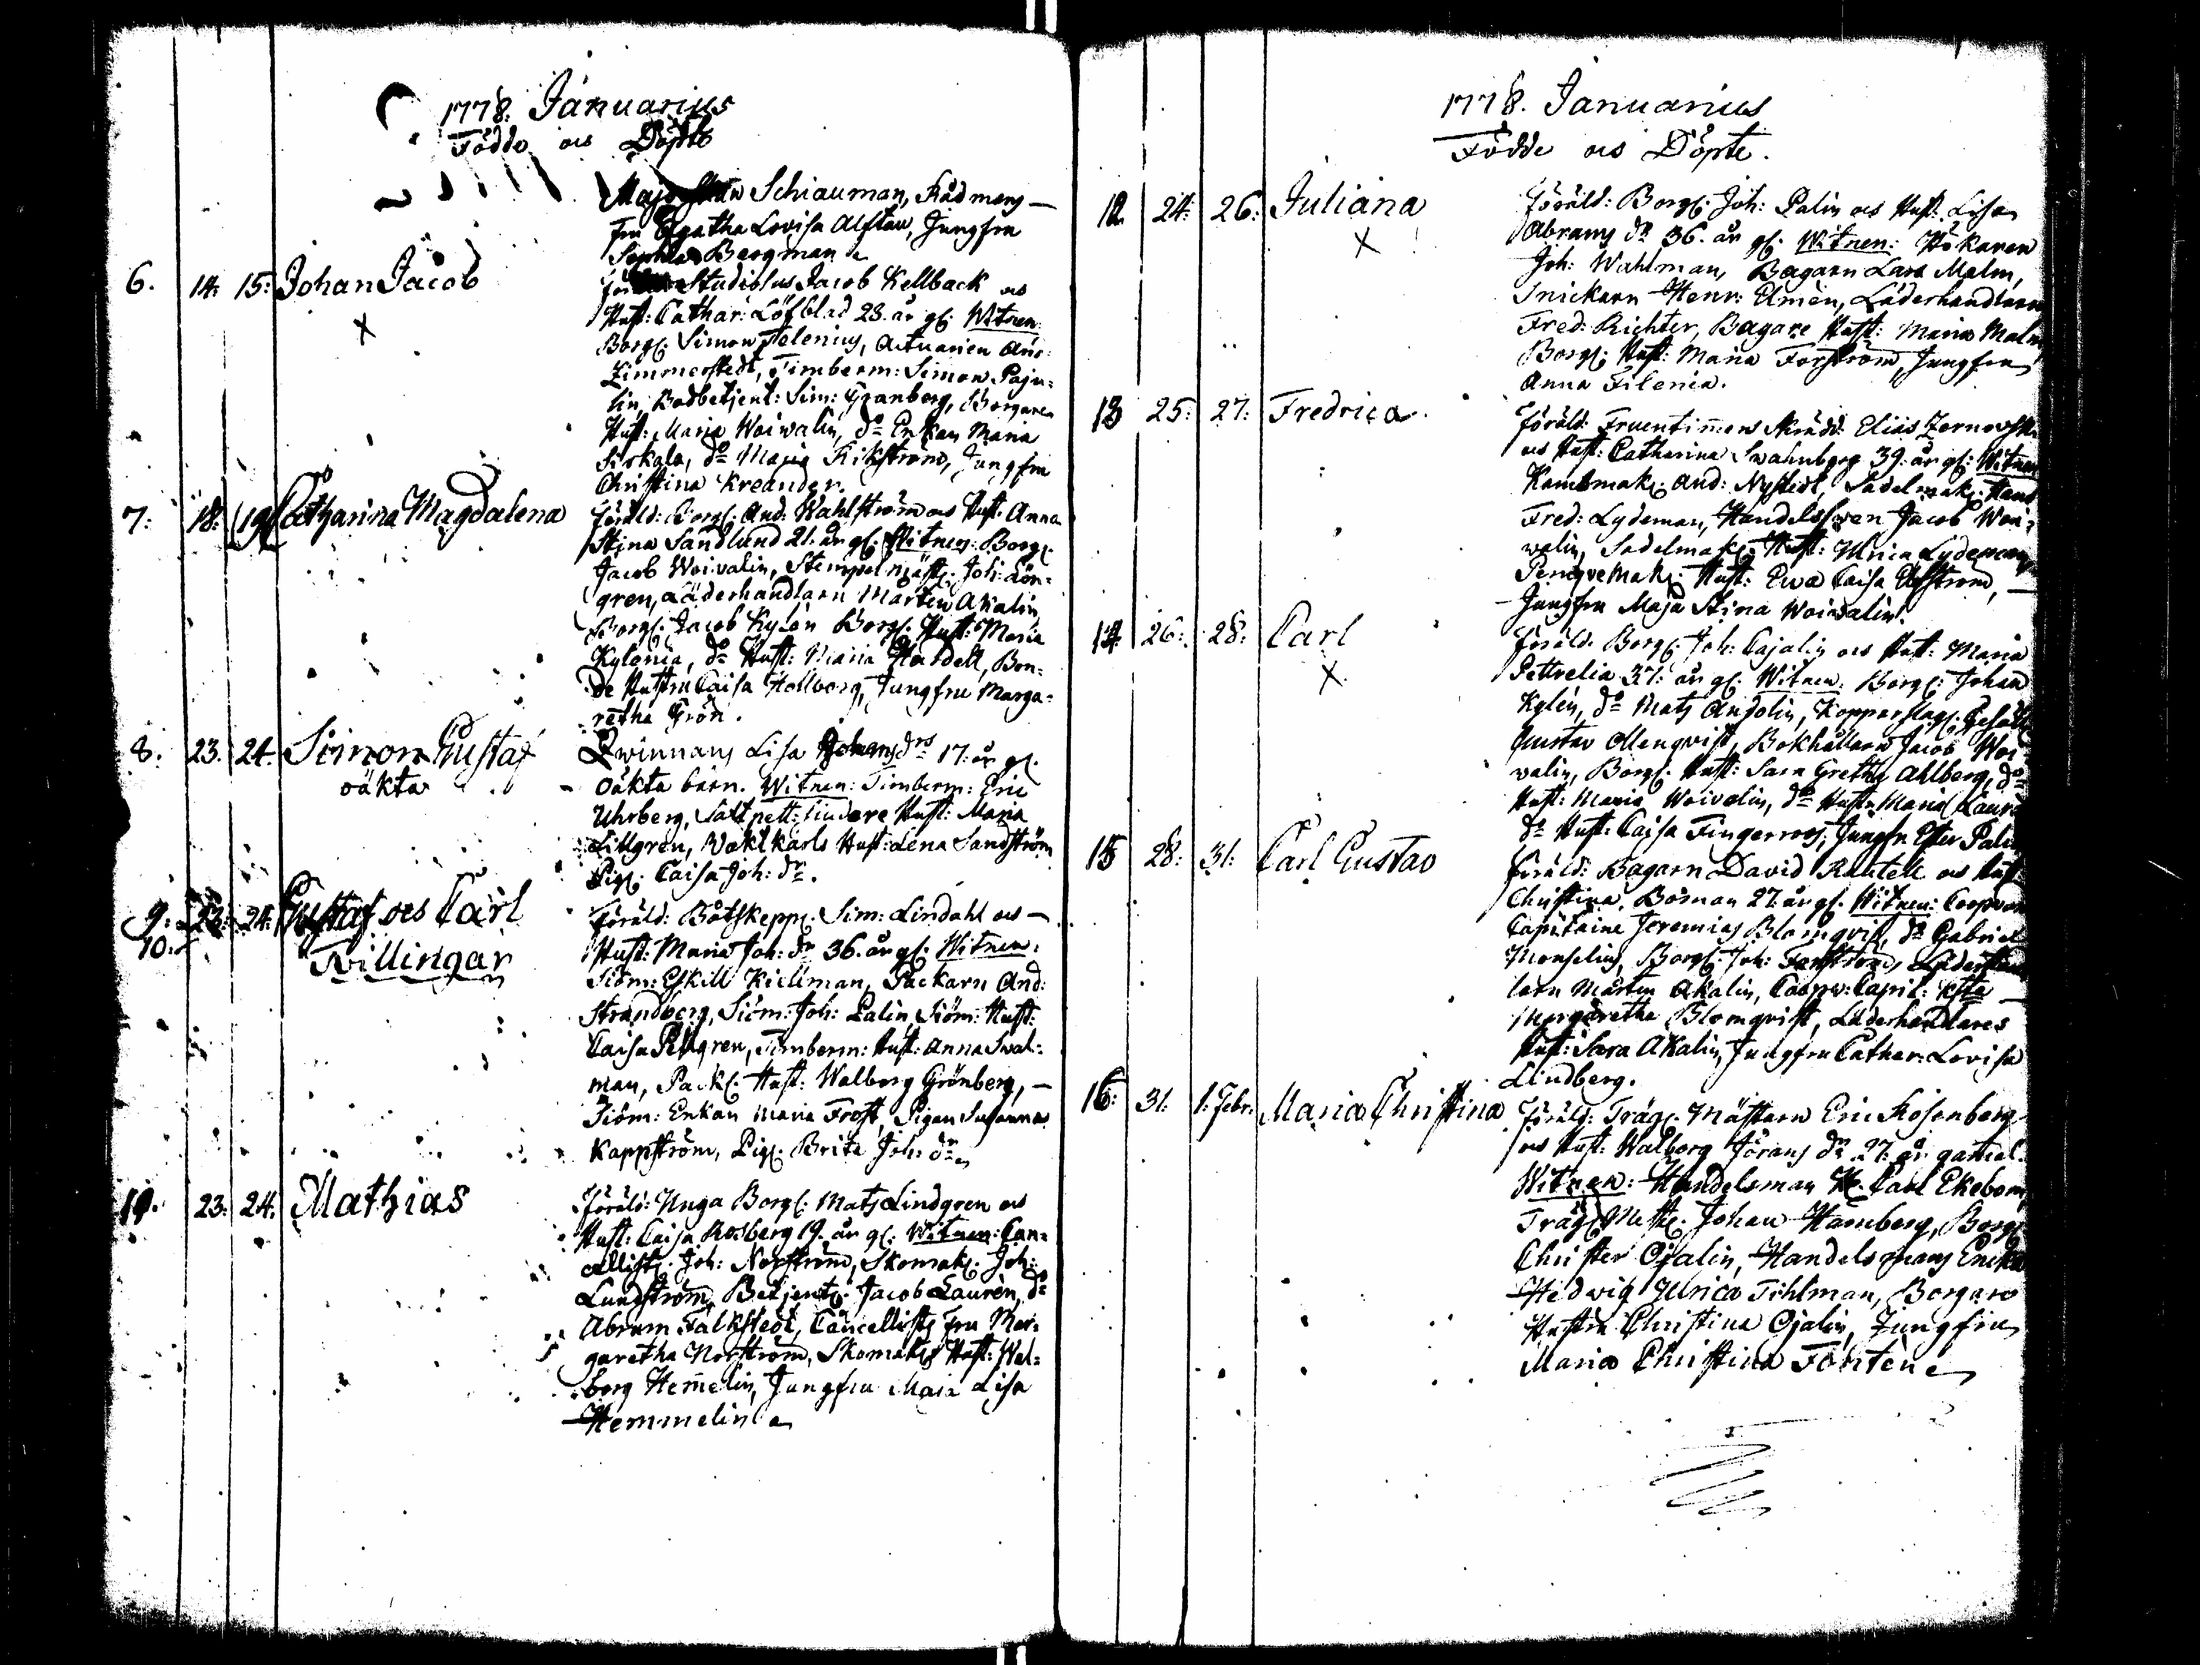 1778. Januarius
Födde och Döpte
Schiauman, Rådmans
fru Agatha Lovisa Alftan, Jungfru
Sophia Bergman
6. 14. 15: Johan Jacob
X
Studiosus Jacob Kellback och
Hust: Cathar: Löfblad 23. år gl: Witnen:
Borg: Simon Telenius, Actuarien
Zimmerstedt, Timberm: Simon Paju-
lin, Bodbetjent: Sim: Granberg, Borgaren
Hust: Maria Woiwalin, do Enkan Maria
do Maria Jungfru
Christina Kreander.
7: 18: 19 Catharina Magdalena
Föräld: Borg: And: Wahlström och Hust: Anna
Stina Sandlund 21. år gl: Witnen: Borg:
Jacob Woivalin, Stempelmäst: Joh: Lön-
gren, Läderhandlarn Mårten Akalin
Borg: Jacob Kylén Borg: Hust: Maria
Kylenia, do Hust: Maria Bon-
de Hustru Caisa Hollborg, Jungfru Marga-
retha Grön.
8. 23. 24. Simon Gustaf
oäkta
Qwinnans Lisa Johansdr 17: år gl.
oäkta barn. Witnen: Timberm: Eric
Uhrberg, Saltpett: siudare Hust: Maria
Lillgren, Waktkarls Hust: Lena Sandström
Pig: Caisa Joh: dr.
9: 23: 24: Gustaf och Carl
10:
Twillingar
Föräld: Båtskepp: Sim: Lindahl och
Hust: Maria Joh: dr 36. år gl: Witnen:
Siöm: Eskill Kiellman, Packarn And:
Strandberg, Siöm: Joh: Palin, Siöm: Hust:
Caisa Timberm: Hust: Anna Swal-
man, Pack: Hust: Walborg Grönberg,
Siöm: Enkan Maria Frost, Pigan Susanna
Kappström, Pig: Brita Joh: dr
23: 24. Mathias
Föräld: Unga Borg: Mats Lindgren och
Hust: Caisa Rosberg 19. år gl: Witnen: Can-
cellist: Joh: Norström, Skomak: Joh:
Lundström, Betjent: Jacob Laurén, do
Abram Falkstedt, Cancellists Fru Mar-
garetha Norström, Skomak: Hust: Wal-
borg Hemmelin, Jungfru Maja Lisa
Hemmelin
1778. Januarius
Födde och Döpte.
12 24: 26: Juliana
X
Föräld: Borg: Joh: Palin och Hust: Lisa
Abrams dr 36. år gl: Witnen: Hökaren
Joh: Wahlman, Bagarn Lars Malm,
Snickarn Henr: Elmén, Läderhandlarn
Fred: Richter, Bagare Hust: Maria Malm
Borg: Hust: Maria Forström, Jungfru
Anna Filenia.
13 25: 27: Fredrica
Föräld: Fruentimmers Skrädd: Elias
och Hust: Catharina Swahnberg 39: år gl: Witnen
Kammak: And: Nystedt, Sadelmak: Hans
Fred: Lydeman, Handelssven Jacob Woi-
walin, Sadelmak: Hust: Ulrica Lydeman
Hust: Ewa Caisa
Jungfru Maja Stina Woiwalin.
14 26: 28: Carl
X
Föräld: Borg: Joh: Cajalin och Hust: Maria
Pettrelia 37: år gl: Witnen: Borg: Johan
Kylén, do Mats Anjolin, Kopparslag: Gesäll
Gustav Ollenqvist, Bokhållarn Jacob Woi-
walin, Borg: Hust: Sara Greta Ahlberg, do
Hust: Maria Woivalin, do Hustr: Maria
do Hust: Caisa Fingerroos, Jungfr: Ester Palin
15 28: 31: Carl Gustav
Föräld: Bagarn David Rautell och Hust:
Christina Böman 27. år gl: Witnen: Coopvar
Capitaine Jeremias Blomqvist, do Gabriel
Monselius, Borg: Joh: Forström, Läderhand
larn Mårten Akalin, Coopv: Capit:
Margaretha Blomqvist, Läderhandlares
Hust: Sara Akalin, Jungfru Cathar: Lovisa
Lindberg.
16: 31. 1: Febr: Maria Christina
Föräld: Trägl: Mästarn Eric Rosenberg
och Hust: Walborg Jörans dr 27: år gamal
Witnen: Handelsman Carl Ekebom,
Trägl: Mest: Johan Hamberg, Borg:
Christer Ojalin, Handelsmans Enka
Hedwig Ulrica Tihlman, Borgare
Hustru Christina Ojalin, Jungfru
Maria Christina Fontén